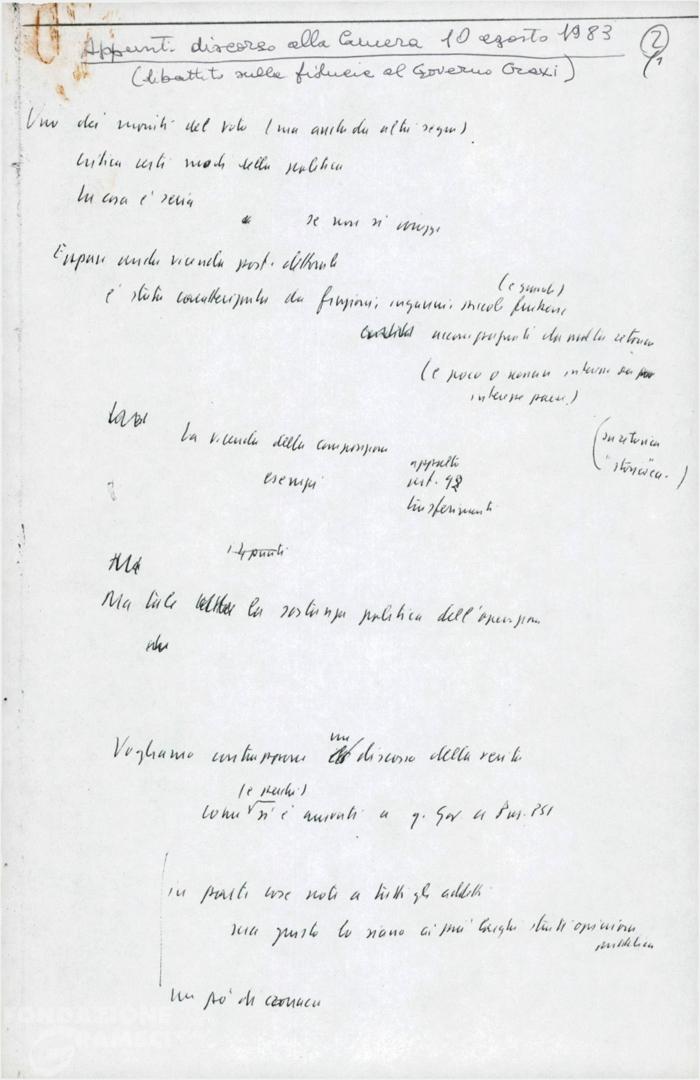 Appunti discorso alla Camera 10 agosto 1983 2/1
(dibattito sulla fiducia al Governo Craxi)
Uno dei moniti del voto (ma anche da altri segni)
critica certi modi della politica
La cosa è seria
se non si corregge
Eppure anche vicenda post-elettorale
(e grandi)
è stata caratterizzata da finzioni, inganni, piccole furberie
accompagnati da molta retorica
(e poco o nessun interesse
interesse paese)
La vicenda della composizione
(su retorica
"storica")
esempi
appalto
trasferimenti
14 punti
Ma
Ma tale la sostanza politica dell'operazione
che
Vogliamo contrapporre un discorso della verità
(e perché)
come si è arrivati a q. Gov a Pres. PSI
in parte cose note a tutti gli addetti
ma giusto lo siano ai più larghi strati opinione
pubblica
un po' di cronaca
FONDAZIONE
GRAMSCI